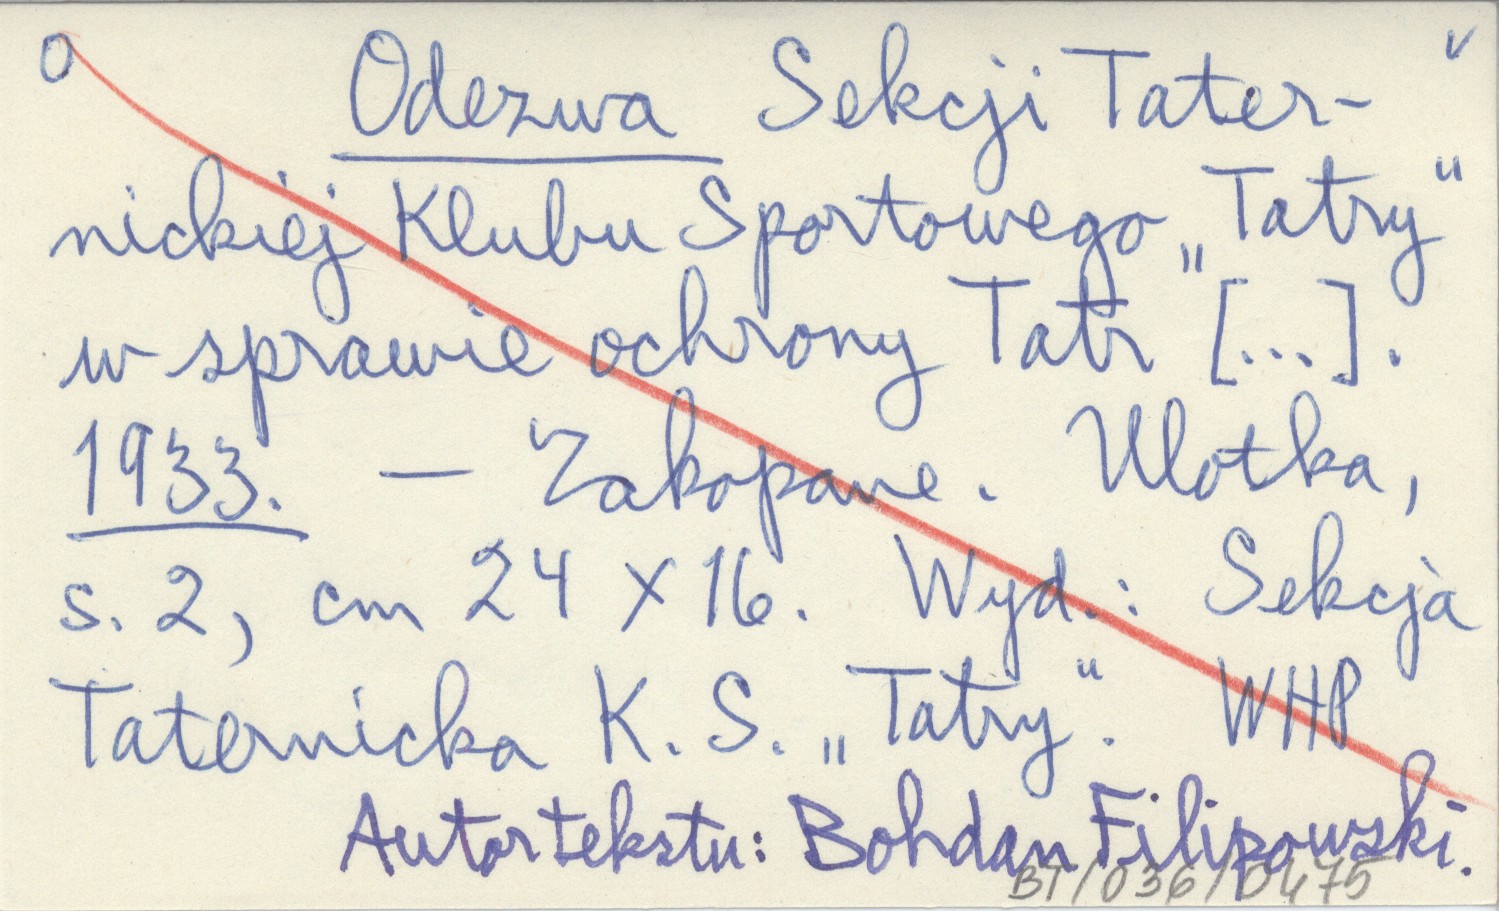 O Odezwa Sekcji Tater- v
nickiej Klubu Sportowego „Tatry"
w sprawie ochrony Tatr [...].
1933. — Zakopane. Ulotka,
s. 2, cm 24 x 16. Wyd.: Sekcja
Taternicka K. S. „Tatry". WHP
Autor tekstu: Bohdan Filipowski.
BT/036/0475